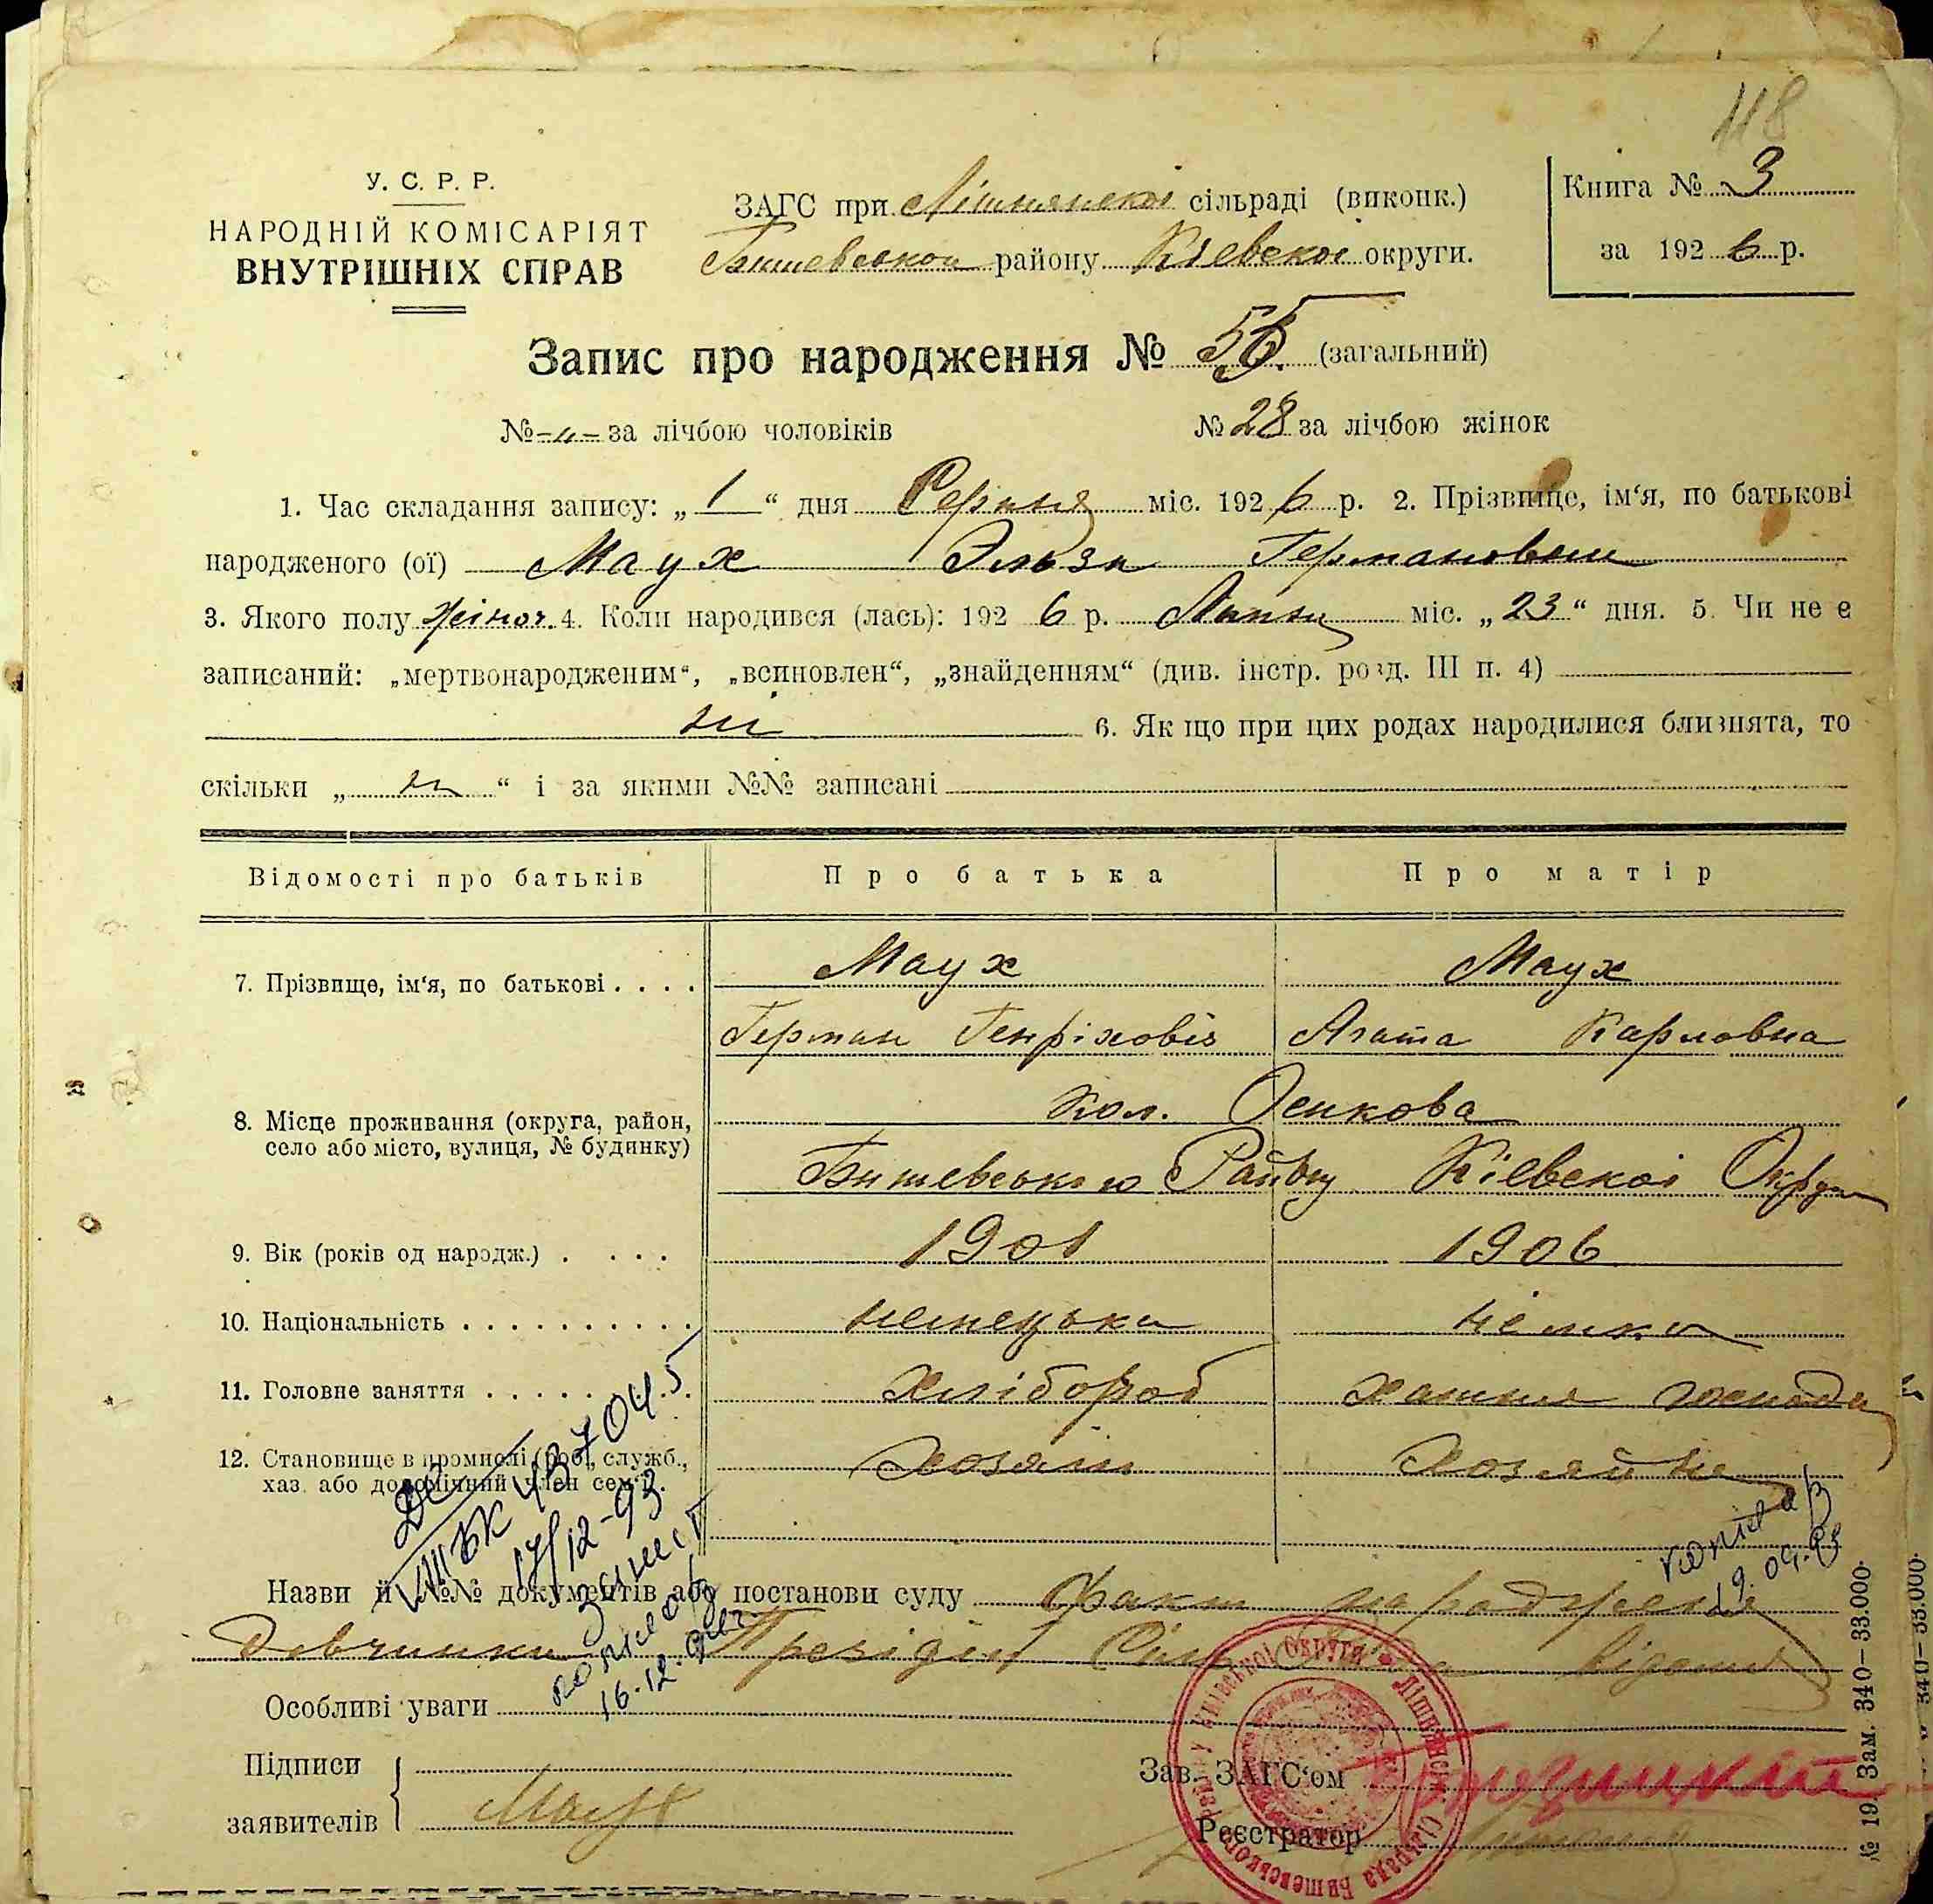 118
У. С. Р. Р.
НАРОДНІЙ КОМІСАРІЯТ
ВНУТРІШНІХ СПРАВ
ЗАГС при Лішнянскоі сільраді (виконк.)
Бишевськои району Кіевскоі округи.
Книга № 3
за 192 6 р.
Запис про народження № 55. (загальний)
№ -„- за лічбою чоловіків № 28 за лічбою жінок
1. Час складання запису: „ 1 “ дня Серпня міс. 192 6 р. 2. Прізвище, ім‘я, по батькові
народженого (ої) Маух Эльза Германовна
3. Якого полу жіноч. 4. Коли народився (лась): 192 6 р. Липня міс. „ 23 “ дня. 5. Чи не є
записаний: „мертвонародженим“, „всиновлен“, „знайденням“ (див. інстр. розд. III п. 4)
ні 6. Як що при цих родах народилися близнята, то
скільки „ “ і за якими №№ записані
Відомості про батьків Про батька Про матір
7. Прізвище, ім‘я, по батькові . . . . Маух Маух
Герман Генріховіч Агата Карловна
8. Місце проживання (округа, район, село або місто, вулиця, № будинку) Кол. Осикова
Бишевського Району Кіевскоі Округи
9. Вік (років од народж.) . . . . 1901 1906
10. Національність . . . . . . . . . . немецька німка
11. Головне заняття . . . . . . . . . . хлібороб хатня господа
12. Становище в промислі (роб., служб., хаз. або допомічний член сем‘ї). хозяін хозяйка
43704.5
17/12-93
копія
19.04.93
Назви й №№ документів або постанови суду Факт народження
Девчинки Презідіі Сіль відомий
копія
16.12.
Особливі уваги
Підписи
заявителів
Маух
Зав. ЗАГС‘ом
Реєстратор
Лішнянська Сільрада Бишевського району Київської Округи
№ 19. Зам. 340–33.000.